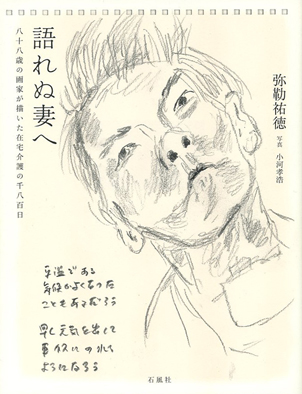 語れぬ妻へ
八十八歳の画家が描いた在宅介護の千八百日
弥勒祐徳
写真 小河孝浩
平溢である
気候がよくなった
こともあるだろう
早く元気を出して
車イスにのれる
ようになろう
石風社